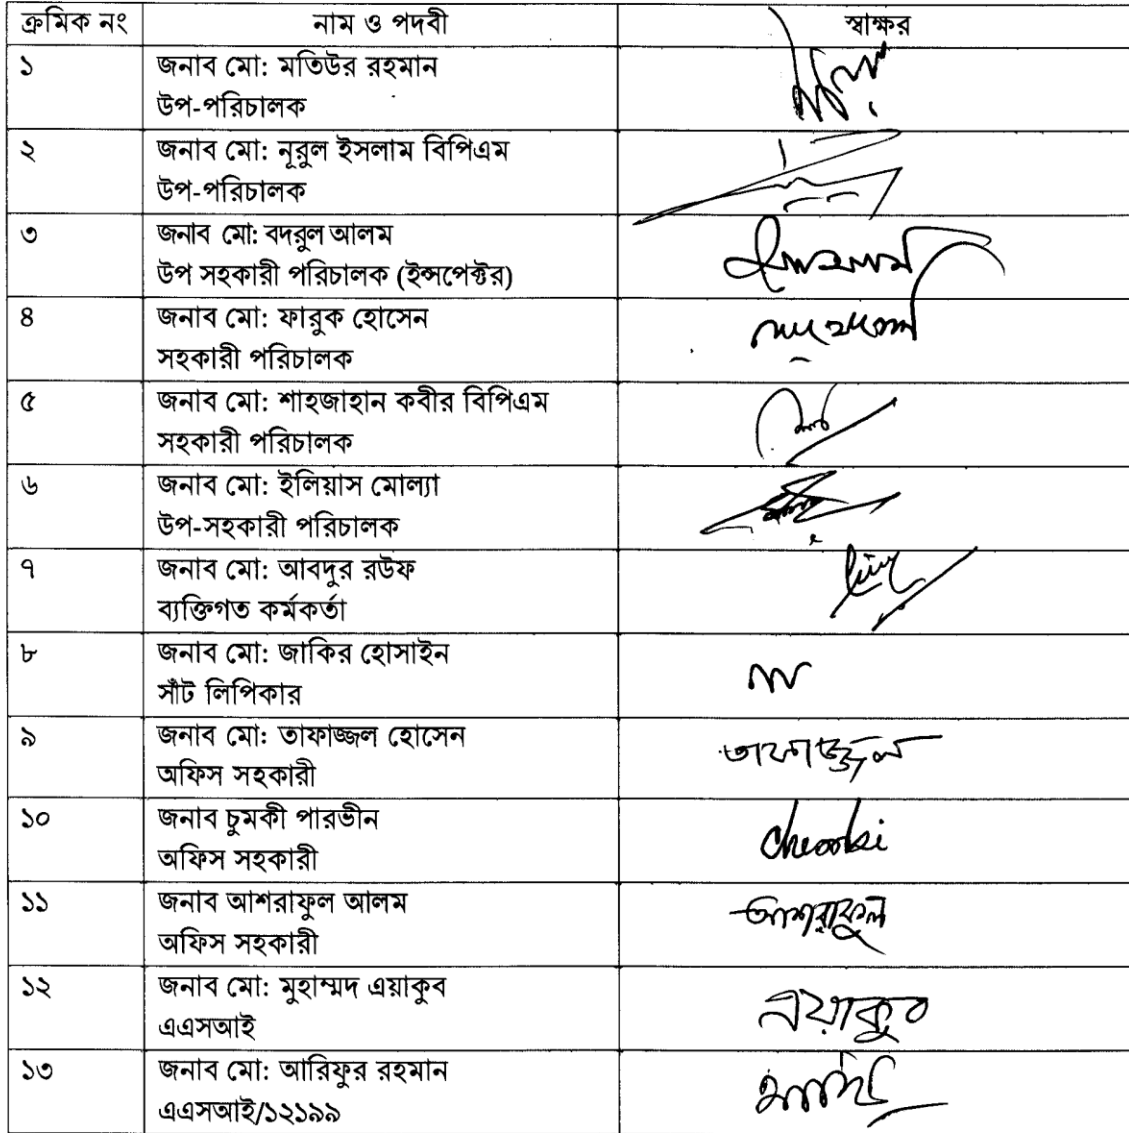 ক্রমিক নং নাম ও পদবী স্বাক্ষর
১ জনাব মো: মতিউর রহমান
উপ-পরিচালক
২ জনাব মো: নূরুল ইসলাম বিপিএম
উপ-পরিচালক
৩ জনাব মো: বদরুল আলম
উপ সহকারী পরিচালক (ইন্সপেক্টর)
৪ জনাব মো: ফারুক হোসেন
সহকারী পরিচালক
৫ জনাব মো: শাহজাহান কবীর বিপিএম
সহকারী পরিচালক
৬ জনাব মো: ইলিয়াস মোল্যা
উপ-সহকারী পরিচালক
৭ জনাব মো: আবদুর রউফ
ব্যক্তিগত কর্মকর্তা
৮ জনাব মো: জাকির হোসাইন
সাঁট লিপিকার
৯ জনাব মো: তাফাজ্জল হোসেন তাফাজ্জল
অফিস সহকারী
১০ জনাব চুমকী পারভীন
অফিস সহকারী
১১ জনাব আশরাফুল আলম আশরাফুল
অফিস সহকারী
১২ জনাব মো: মুহাম্মদ এয়াকুব এয়াকুব
এএসআই
১৩ জনাব মো: আরিফুর রহমান
এএসআই/১২১৯৯